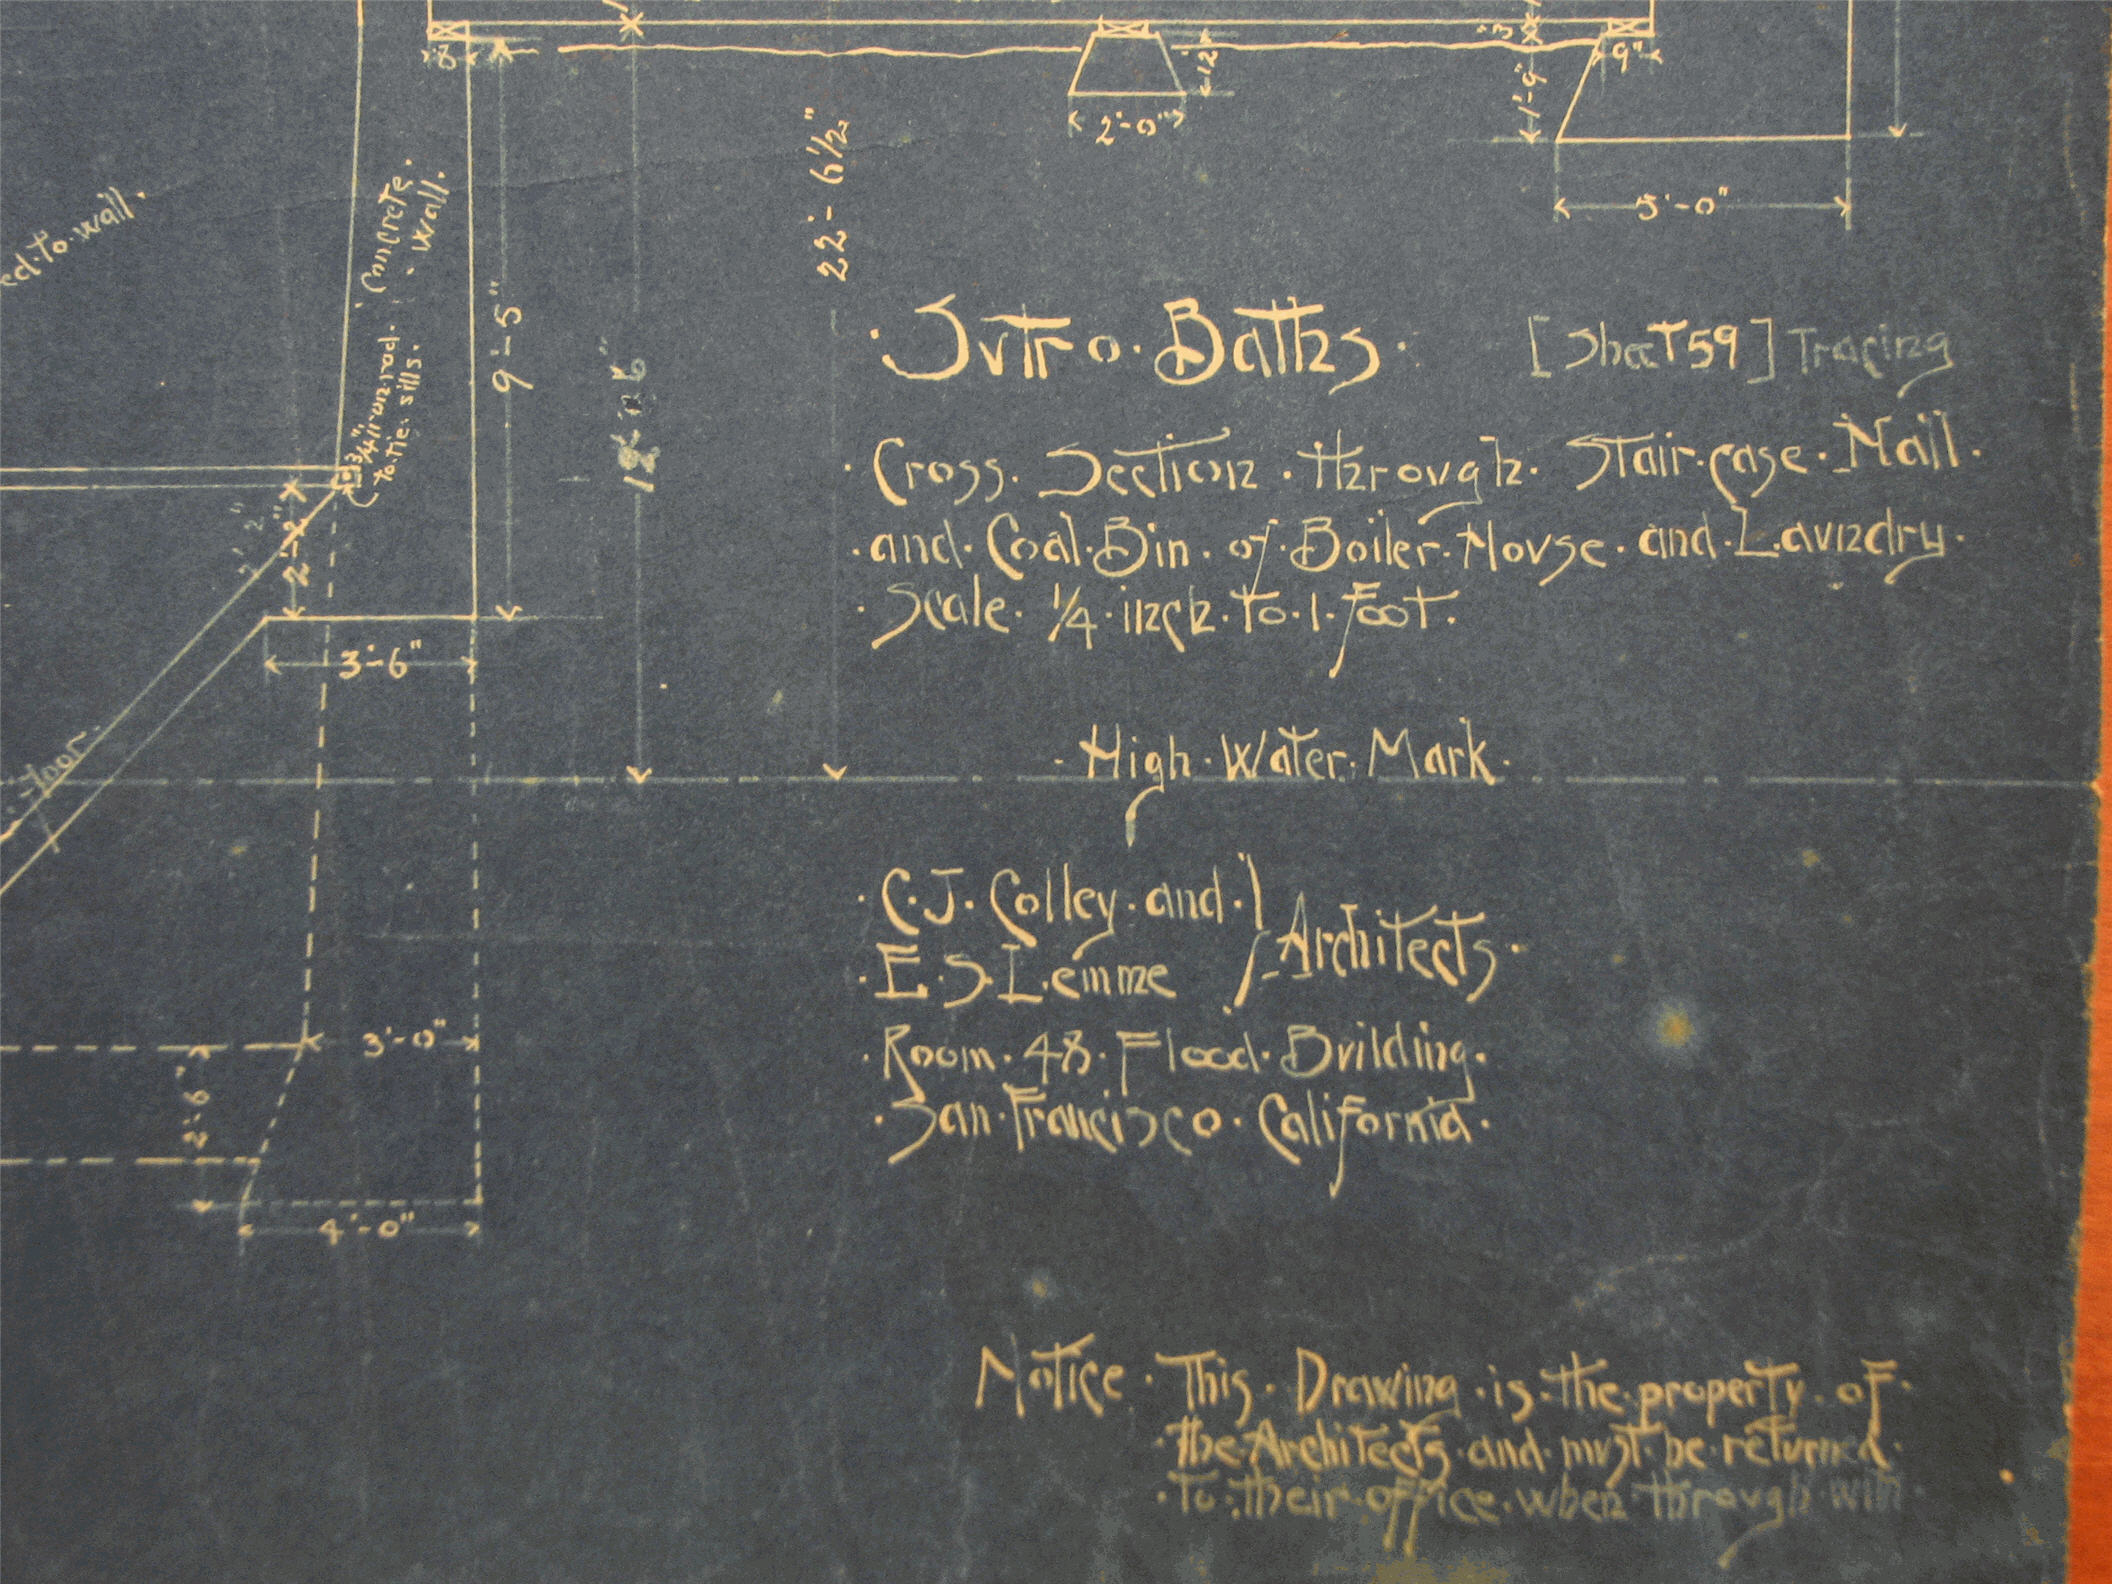 8"
12"
3"
9"
2'-0"
1'-9"
5'-0"
to wall.
Concrete.
Wall.
22'-6 1/2"
9'-5"
3/4" iron rod.
to tie sills.
2'-2"
2'-2"
3'-6"
·Sutro·Baths· [Sheet 59] Tracing
·Cross·Section·through·Stair·case·Hall·
·and·Coal·Bin·of·Boiler·House·and·Laundry·
·Scale·1/4·inch·to·1·foot·
·High·Water·Mark·
floor·
·C·J·Colley·and·
·E·S·Lemme
Architects·
·Room·48·Flood·Building·
·San·Francisco·California·
3'-0"
2'-6"
4'-0"
Notice·This·Drawing·is·the·property·of·
·the·Architects·and·must·be·returned·
·to·their·office·when·through·with·